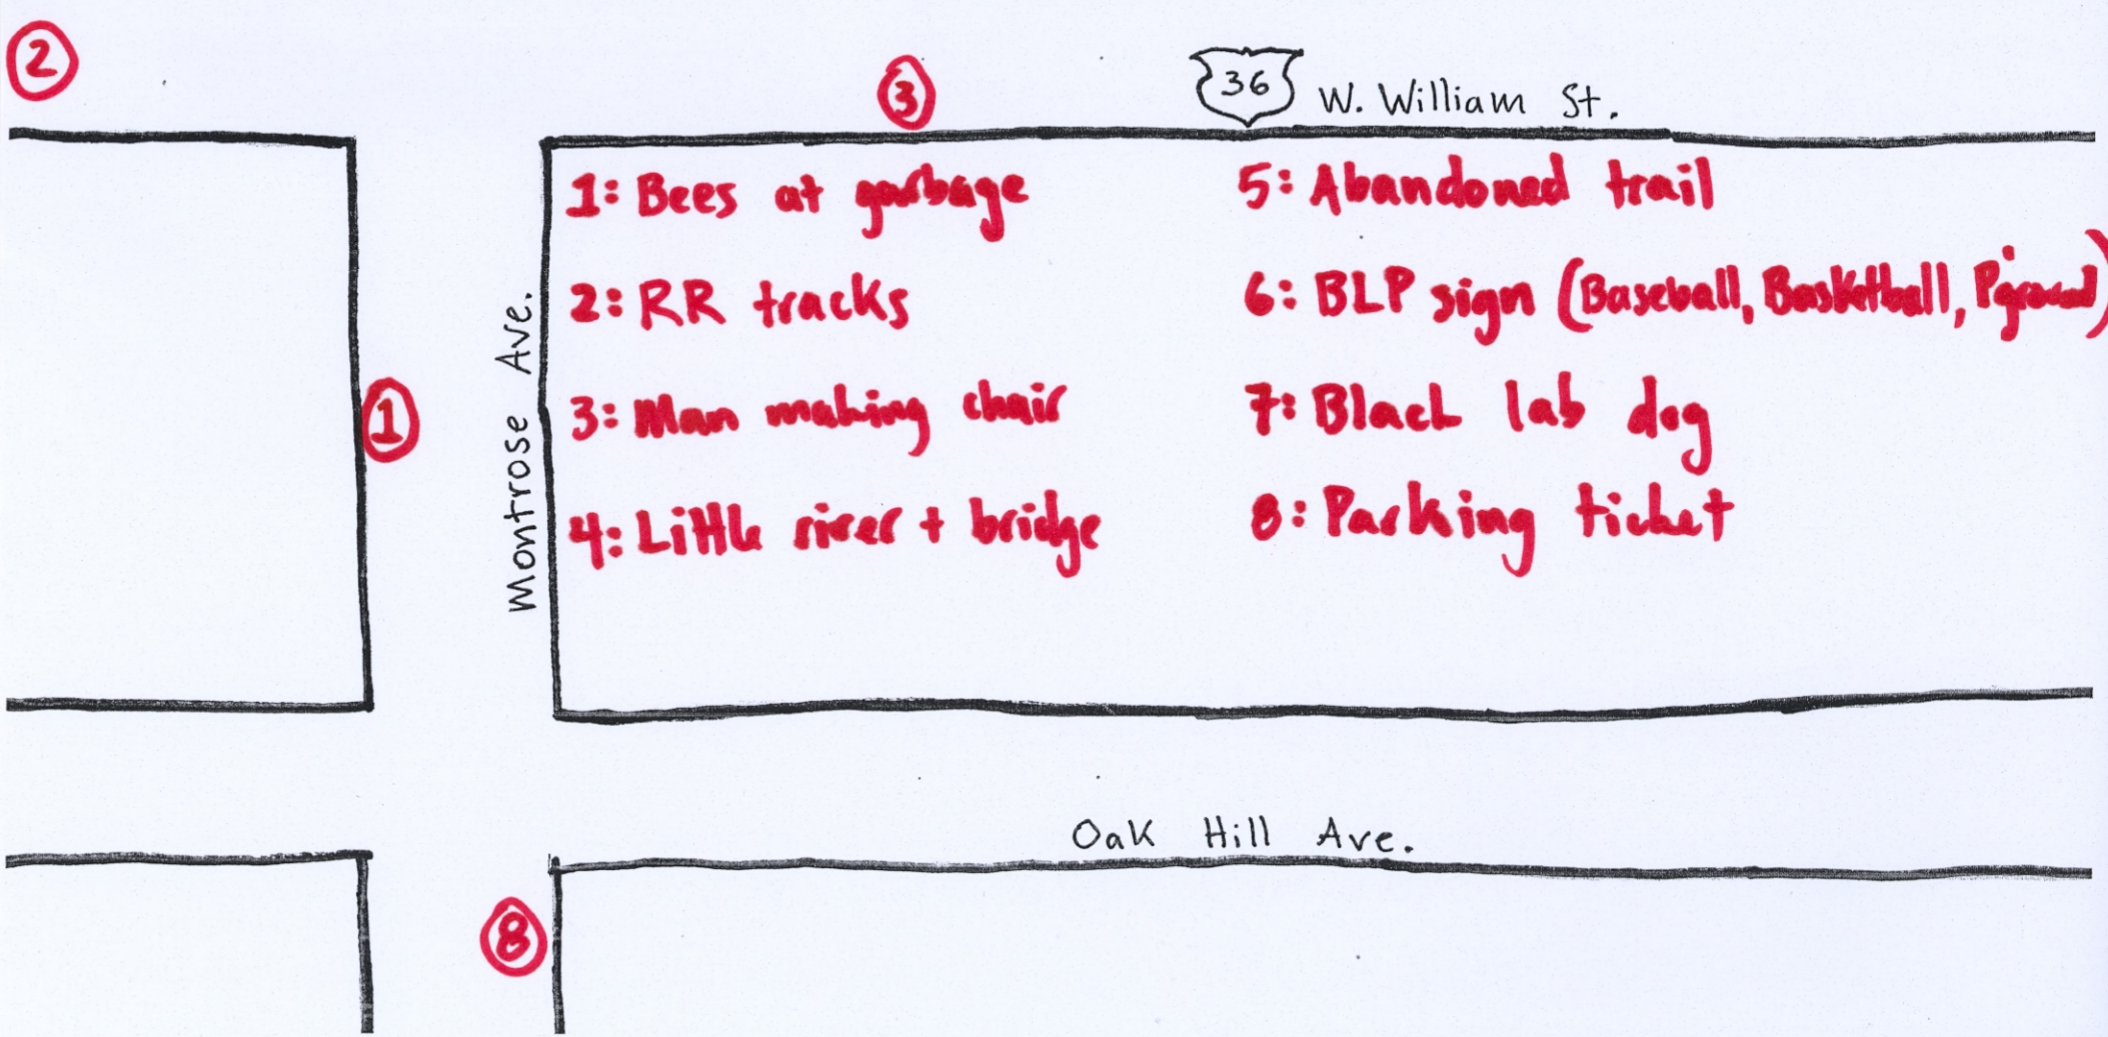 2
3
36 W. William St.
1: Bees at garbage
2: RR tracks
3: Man making chair
4: Little river + bridge
5: Abandoned trail
6: BLP sign (Baseball, Basketball, P'ground)
7: Black lab dog
8: Parking ticket
Montrose Ave.
1
Oak Hill Ave.
8